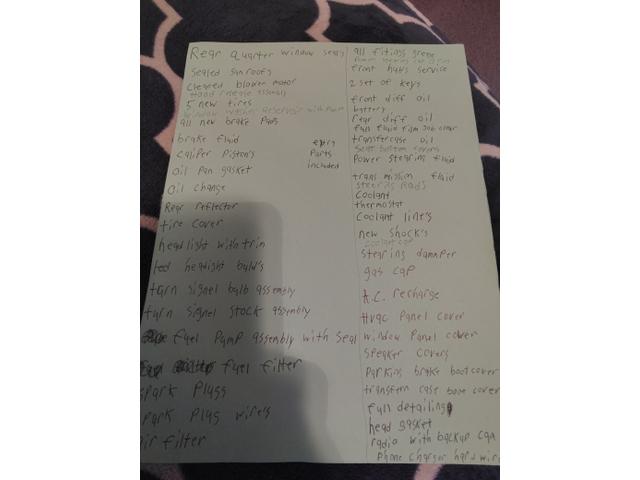 Rear quarter window seals
Sealed sunroofs
cleaned blower motor
Hood release assembly
5 new tires
window washer reservoir with pump
all new brake pads
brake fluid
caliper pistons
oil pan gasket
oil change
Rear reflector
tire cover
headlight with trim
led headlight bulb's
turn signal bulb assembly
turn signal stock assembly
fuel pump assembly with seal
fuel filter
spark plugs
park plug wires
air filter
extra
parts
included
all fitings grese
front hubs service
2 set of keys
front diff oil
battery
rear diff oil
full fluid film job
transfercase oil
seat bottom covers
power stearing fluid
transmission fluid
stearing rads
coolant
thermostat
coolant line's
new shock's
coolant cap
stearing dammper
gas cap
A.C. recharge
Hvac panel cover
window panel cover
speaker covers
parking brake boot cover
transfem case boot cover
full detailing
head gasket
radio with backup cam
Phone charger hard wir